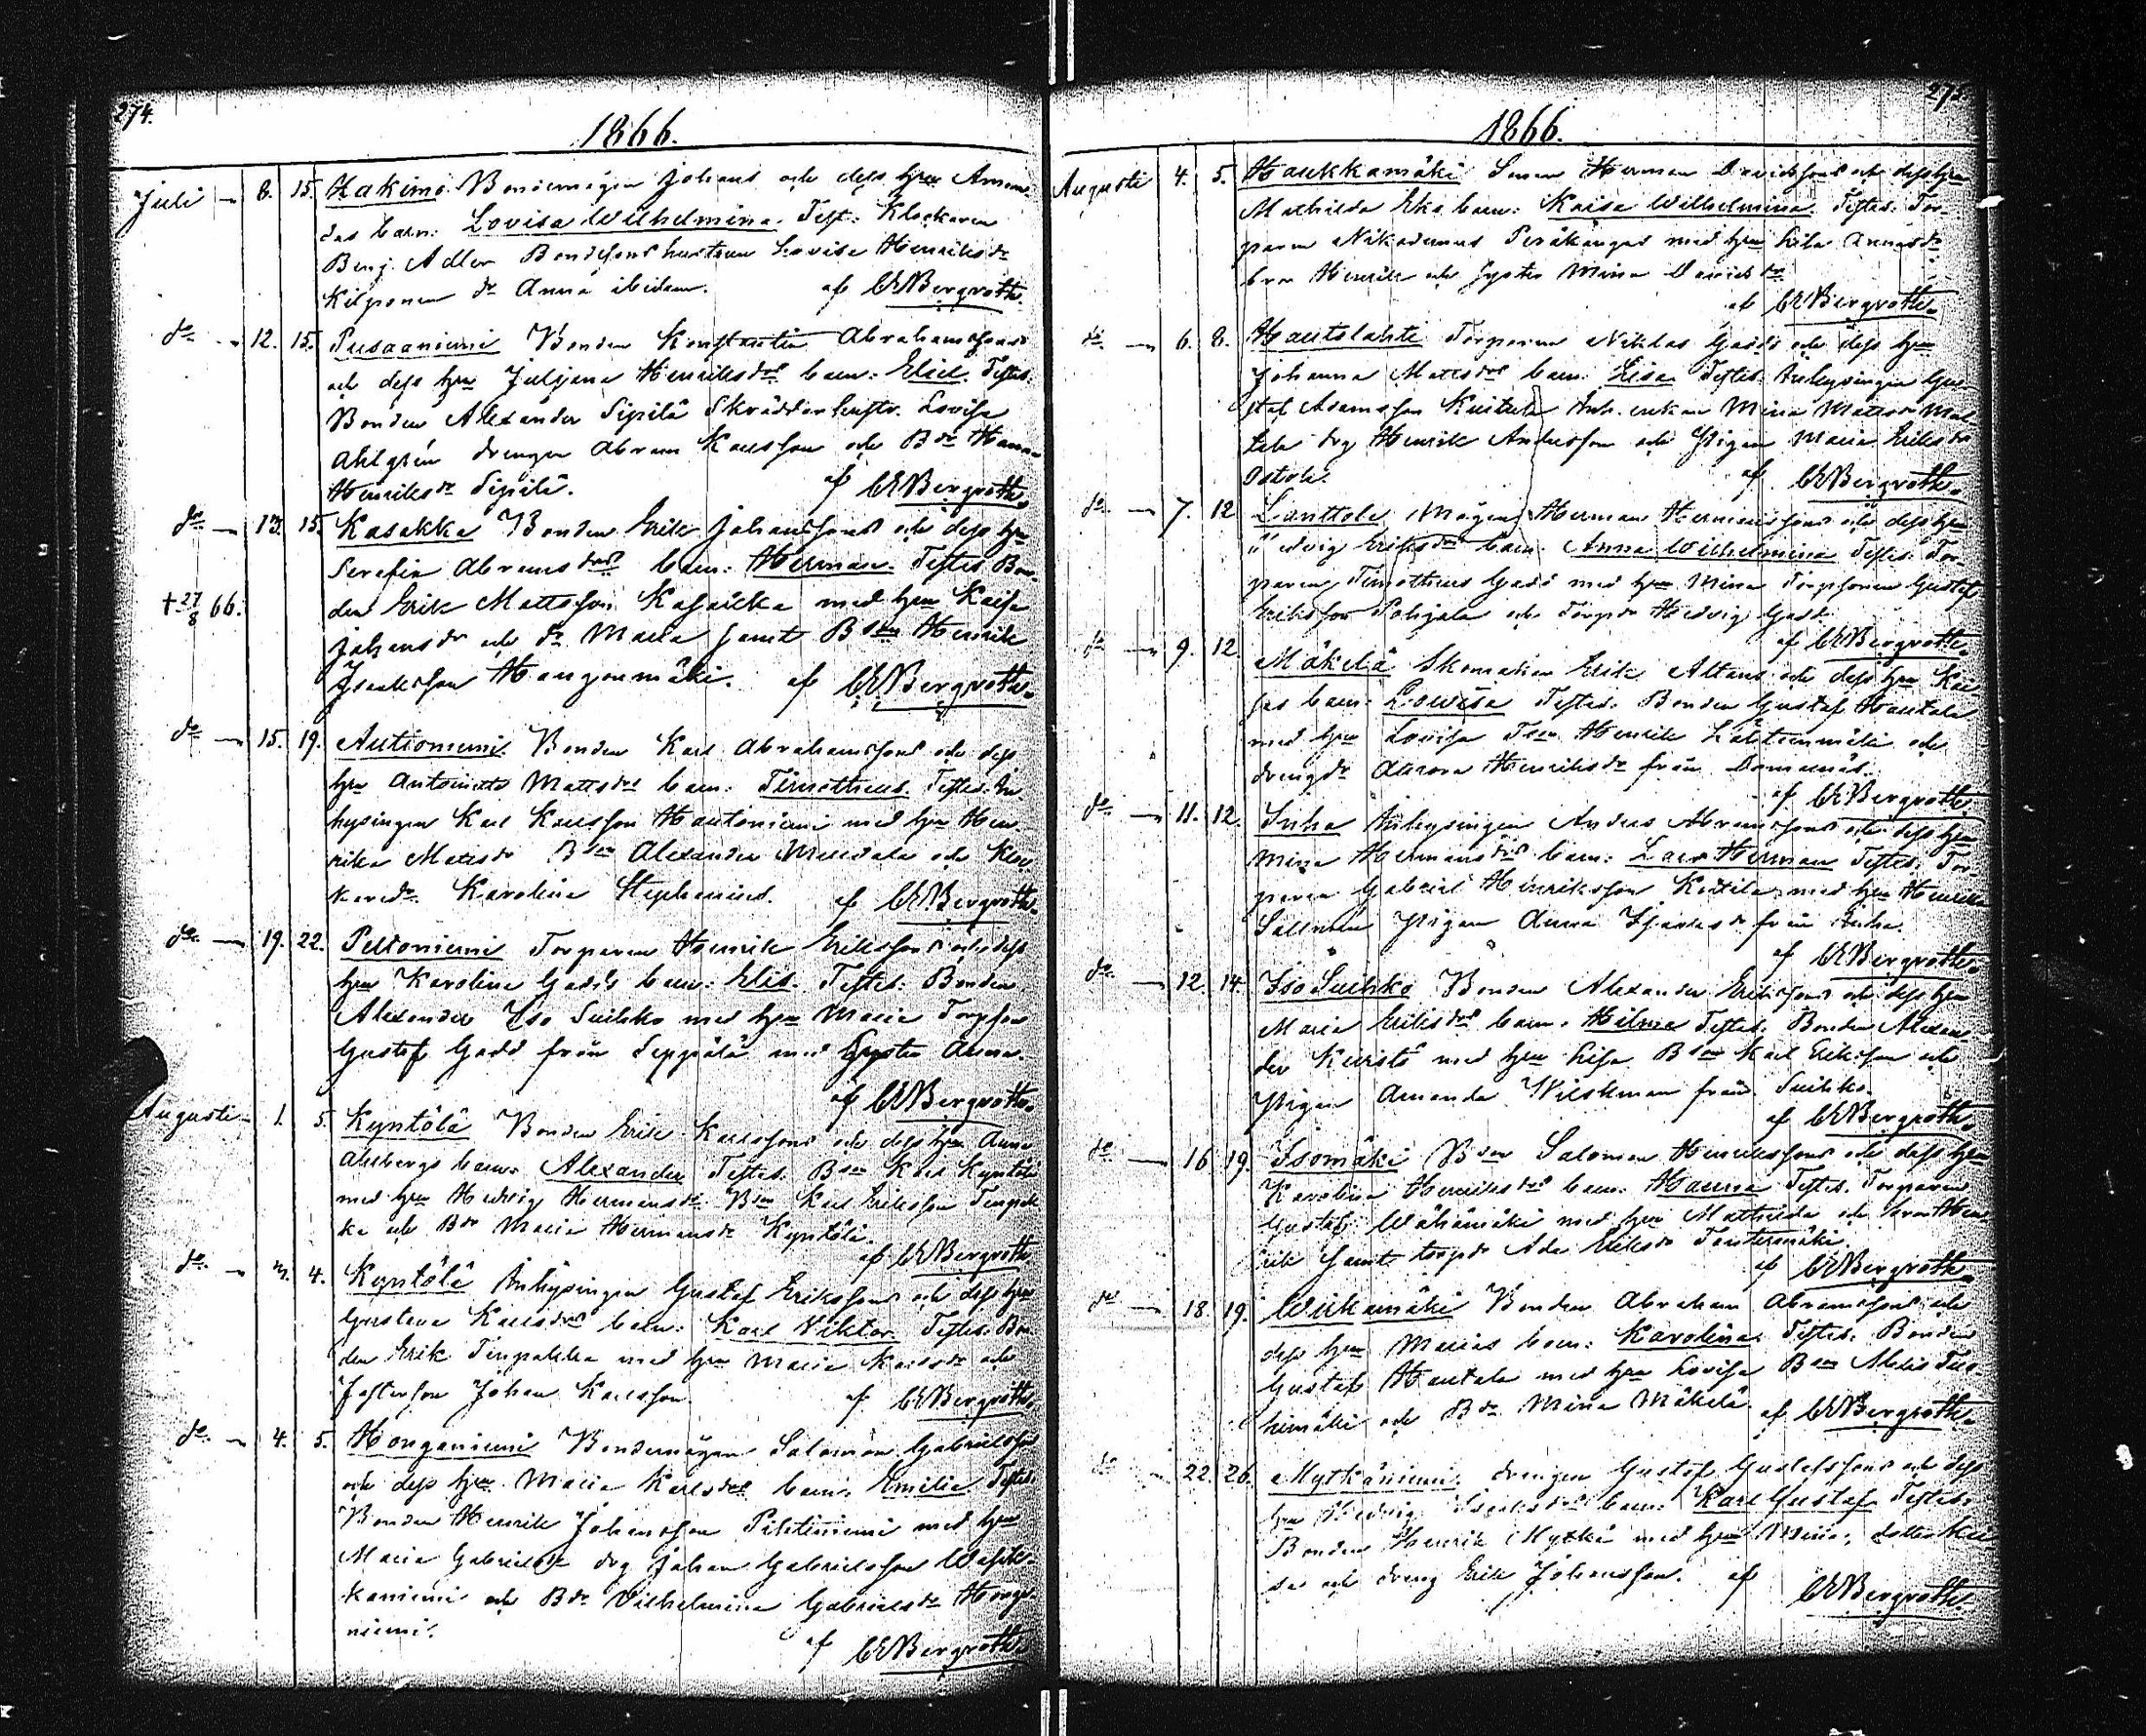 274.
1866.
Juli 8. 15. Hakimo Bondemågen Johans och dess hru Aman-
das barn: Lovisa Wilhelmina. Test: Klockaren
Benj. Adler Bondesons hustrun Lovisa Henriksdr
Kilponen dr Anna ibidem. af CEBergroth.
do 12. 15. Pusaaniemi Bonden Konstantin Abrahamssons
och dess hru Juljana Henriksdrs barn: Elise. Testes:
Bonden Alexander Sipilä Skräddarhustr. Lovisa
Ahlgrén drengen Abram Karlsson och Bdr Hanna
Henriksdr Sipilä. af CEBergroth.
do 13. 15. Kasakka Bonden Erik Johanssons och dess hru
Serafia Abramsdrs barn: Herman. Testes Bon-
† 27/8 66. den Erik Mattsson Kasakka med hru Kaisa
Johansdr och dr Maria samt Bson Henrik
Isaksson Haugonmäki. af CEBergroth.
do 15. 19. Autioniemi. Bonden Karl Abrahamssons och dess
hru Antoinetta Mattsdrs barn: Timotheus. Testes: In-
hysingen Karl Karlsson Hautoniemi med hru Hen-
rika Mattsdr Bson Alexander och Kloc-
karedr Karolina Stephanius. af CEBergroth.
do 19. 22. Peltoniemi Torparen Henrik Erikssons och dess
hru Karolina Gadds barn: Elis. Testes: Bonden
Alexander Iso Suihko med hru Maria Torpson
Gustaf Gadd från Seppälä med syster Anna.
af CEBergroth.
Augusti 1. 5. Kyntölä Bonden Erik Karlssons och dess hru Anna
Ahlbergs barn: Alexander Testes: Bson Karl Kyntölä
med hru Hedvig Hermansdr Bson Karl Eriksson Timpak-
ka och Bdr Maria Hermansdr Kyntölä.
af CEBergroth.
do 3. 4. Kyntölä Inhysingen Gustaf Erikssons och dess hru
Gustava Karlsdrs barn: Karl Viktor. Testes: Bon-
den Erik Timpakka med hru Maria Karlsdr och
Fosterson Johan Karlsson. af CEBergroth.
do 4. 5. Honganiemi Bondemågen Salomon Gabrielssons
och dess hru Maria Karlsdrs barn: Emilia. Testes:
Bonden Henrik Johansson Pihtiniemi med hru
Maria Gabrielsdr drg Johan Gabrielsson
kaniemi och Bdr Wilhelmina Gabrielsdr Honga-
niemi.
af CEBergroth.
275.
1866.
Augusti 4. 5. Haukkamäki Herman Davidssons och dess hru
Mathilda Eks barn: Kaisa Wilhelmina. Testes: Tor-
paren Nikodemus Peräkangas med hru Lisa Annasdr
bror Henrik och syster Mina Davidsdr
af CEBergroth.
do 6. 8. Hautolahti Torparen Niklas Gadds och dess hru
Johanna Mattsdrs barn: Lisa Testes: Inhysingen Gus-
taf Adamsson Inh. enkan Mina Mattsdr
drg Henrik Andersson och Pigan Maria Eriksdr
Ostola. af CEBergroth.
do 7. 12 Lanttola Mågen Herman Hermanssons och dess hru
Hedvig Eriksdrs barn: Anna Wilhelmina Testes: Tor-
paren Timotheus Gadd med hru Mina Torpsonen Gustaf
Eriksson Pohjala och Torpdr Hedvig Gadd.
af CEBergroth.
do 9. 12. Mäkelä Skomakaren Erik Altans och dess hru Kai-
sas barn: Lowisa Testes: Bonden Gustaf Hautala
med hru Lovisa Tson Henrik Lähteenmäki och
drengdr Aurora Henriksdr från
af CEBergroth.
do 11. 12. Inha Inhysingen Anders Abramssons och dess hru
Mina Hermansdrs barn: Lars Herman Testes: Tor-
paren Gabriel Henriksson Kuitila med hru Henrika
Sallmén Pigan Anna från Inha.
af CEBergroth.
do 12. 14. Iso Suihko Bonden Alexander Erikssons och dess hru
Maria Eriksdrs barn: Hilma Testes: Bonden Alexan-
der Keirstö med hru Lisa Bson Karl Eriksson och
Pigan Amanda Wilskman från Suihko.
af CEBergroth.
do 16 19. Isomäki Bson Salomon Henrikssons och dess hru
Karolina Henriksdrs barn: Hanna Testes: Torparen
Gustaf Wähämäki med hru Mathilda och bror Hen-
rik samt torpdr Ada Eriksdr
af CEBergroth.
do 18. 19. Wiikamäki Bonden Abraham Abramssons och
dess hru Marias barn: Karolina. Testes: Bonden
Gustaf Hautala med hru Lovisa Bson Alexis Tuo-
himäki och Bdr Mina Mäkelä. af CEBergroth.
do 22. 26. Mytkäniemi. Drengen Gustaf Gustafssons och dess
hru Hedvig Isaksdrs barn: Karl Gustaf Testes:
Bonden Henrik Mytkä med hru Maria, dotter
och dreng Erik Johansson. af
CEBergroth.